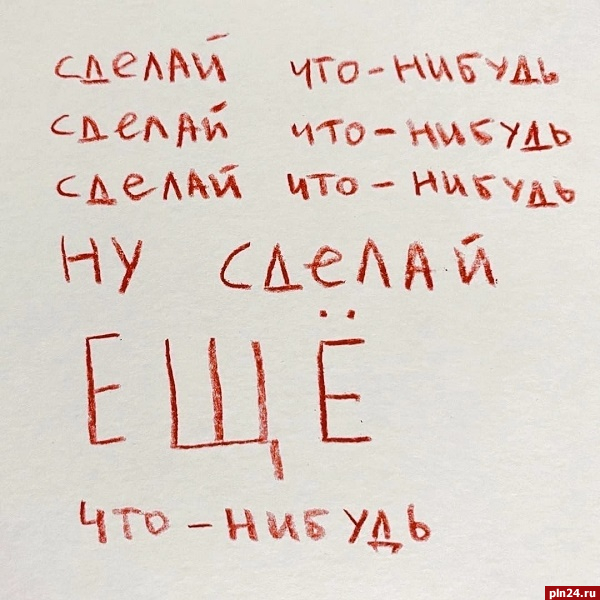 сделай что-нибудь
сделай что-нибудь
сделай что-нибудь
ну сделай
ЕЩЁ
что-нибудь
pln24.ru